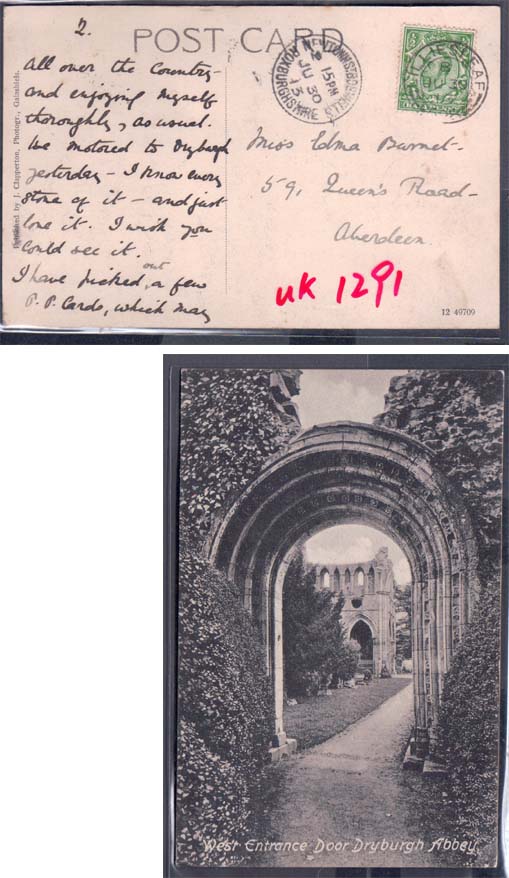 2.
POST CARD
All over the Country -
and enjoying myself
thoroughly, as usual.
We motored to Dryburgh
yesterday - I know every
stone of it - and just
love it. I wish you
could see it.
I have picked out a few
P.P. Cards, which may
by J. Clapperton, Photogr., Galashiels.
NEWTOWN ST BOSWELLS
2 15PM
JU 30
13
ROXBURGHSHIRE
Miss Edma Burnet -
59, Queen's Road -
Aberdeen.
uk 1291
12 49709
West Entrance Door Dryburgh Abbey